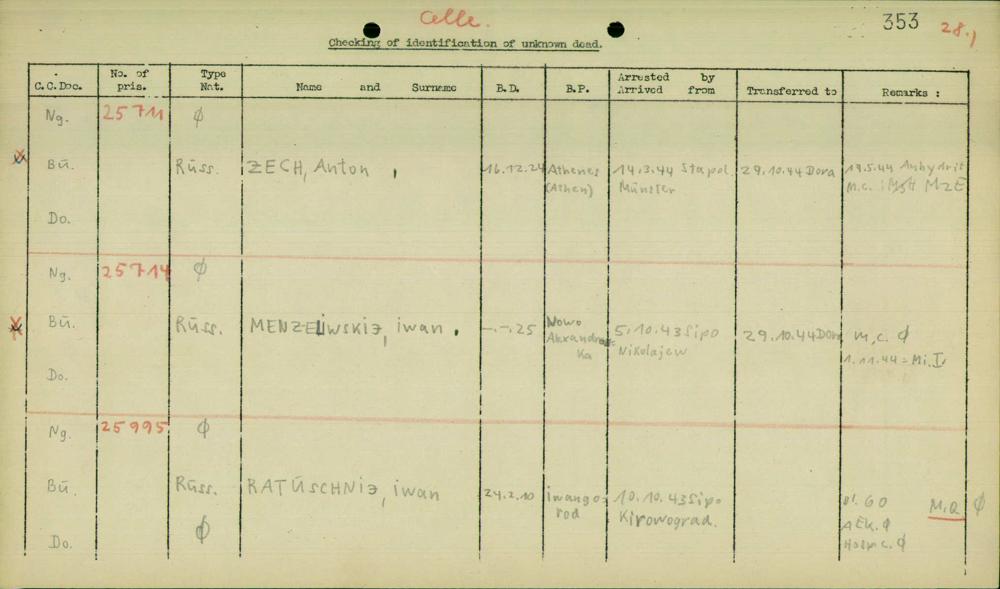 Celle.
353 28.)
Checking of identification of unknown dead.
C.C.Doc. No. of pris. Type Nat. Name and Surname B.D. B.P. Arrested by Arrived from Transferred to Remarks :
Ng. 25711 ϕ
Bü. Rüss. ZECH, Anton , 16.12.24 Athenes (Athen) 14.3.44 Stapol Münster 29.10.44 Dora 19.5.44 Anhydrit M.C. : MzE
Do.
Ng. 25714 ϕ
Bü. Rüss. MENZELIWSKIJ, iwan . -.-.25 Nowo Alexandrowka 5.10.43 Sipo Nikolajew 29.10.44 Dora M.C. ϕ
1.11.44 = Mi. I
Do.
Ng. 25995 ϕ
Bü. Rüss. RATÜSCHNIJ, iwan 24.2.10 iwangorod 10.10.43 Sipo Kirowograd. bl. 60 M.Q ϕ
AEK. ϕ
Do. ϕ Hosp c. ϕ